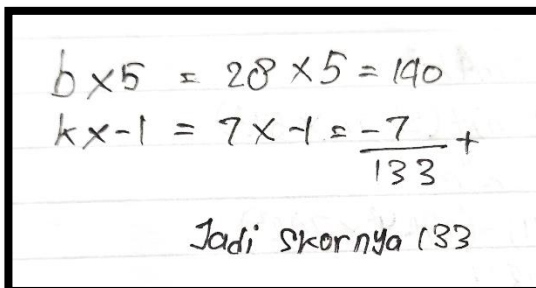 b×5 = 28×5 = 140
k×-1 = 7×-1 = -7 +
133
Jadi skornya 133